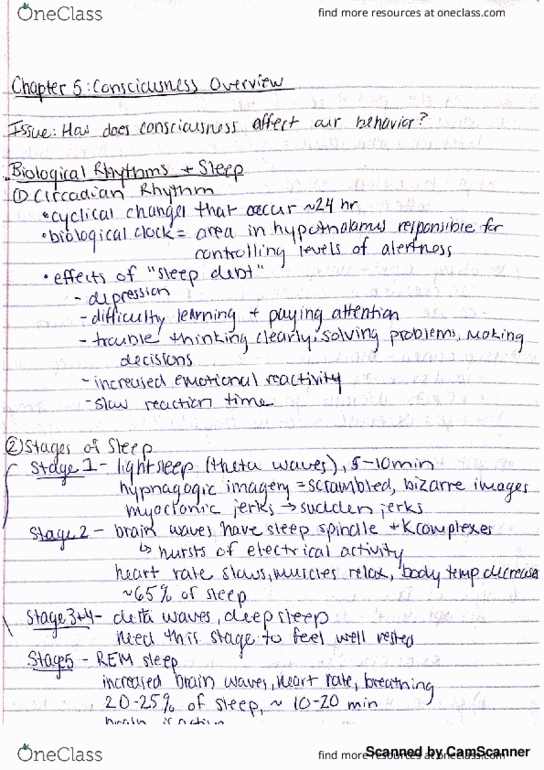 OneClass
find more resources at oneclass.com
Chapter 5: Consciousness Overview
Issue: How does consciousness affect our behavior?
Biological Rhythms + Sleep
① Circadian Rhythm
• cyclical changes that occur ~24 hr
• biological clock = area in hypothalamus responsible for
controlling levels of alertness
• effects of "sleep debt"
- depression
- difficulty learning + paying attention
- trouble thinking clearly, solving problems, making
decisions
- increased emotional reactivity
- slow reaction time
② Stages of Sleep
Stage 1 - light sleep (theta waves), 5-10 min
hypnagogic imagery = scrambled, bizarre images
myoclonic jerks → sudden jerks
Stage 2 - brain waves have sleep spindle + K complexes
↳ bursts of electrical activity
heart rate slows, muscles relax, body temp decreases
~65% of sleep
Stage 3+4 - delta waves, deep sleep
need this stage to feel well rested
Stage 5 - REM sleep
increased brain waves, heart rate, breathing
20-25% of sleep, ~ 10-20 min
brain is active
OneClass
find more resources at oneclass.com
Scanned by CamScanner